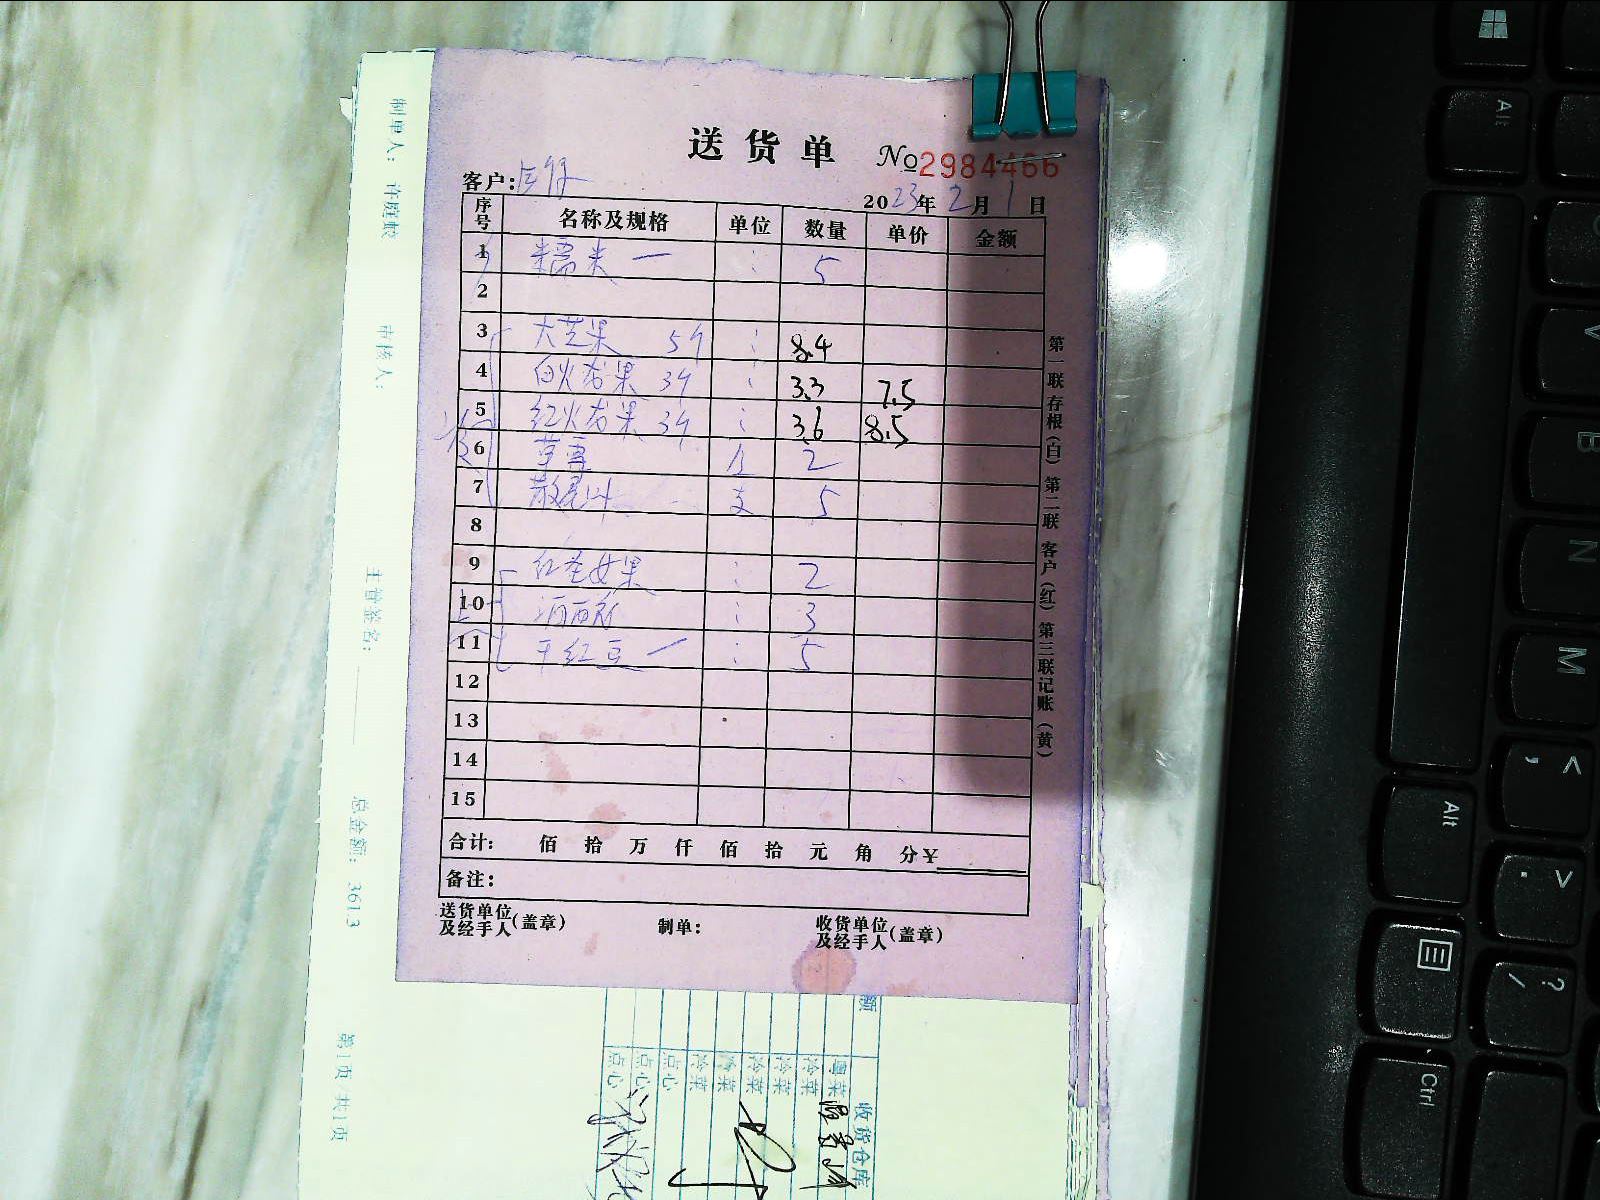 送货单
№2984466
客户:
2023年2月1日
序号 名称及规格 单位 数量 单价 金额
1 糯米 一 : 5
2
3 大芒果 5个 : 8.4
4 白火龙果 3个 : 3.3 7.5
5 红火龙果 3个 : 3.6 8.5
6 个 2
7 支 5
8
9 红圣女果 : 2
10 : 3
11 干红豆 一 : 5
12
13
14
15
合计: 佰 拾 万 仟 佰 拾 元 角 分 ¥
备注:
送货单位及经手人(盖章) 制单: 收货单位及经手人(盖章)
第一联存根(白) 第二联 客户(红) 第三联记账(黄)
制单人:
审核人:
主管签名:
总金额: 3613
第1页 共1页
额 收货仓库
冷菜
冷菜
冷菜
冷菜
冷菜
点心
点心
点心
Alt
B
N
M
< ,
Alt
> .
? /
Ctrl